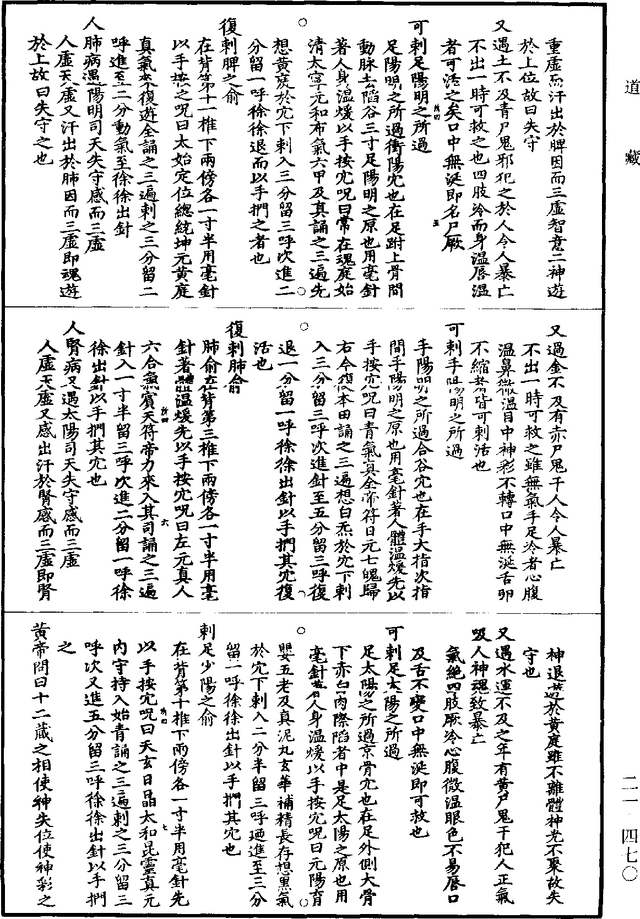 道藏
重虛而汗出於脾因而三虛智意二神遊
於上位故曰失守
又遇土不及青尸鬼邪犯之於人令人暴亡
不出一時可救之也四肢冷而身溫唇溫
者可活之矣口中無涎即名尸厥
可刺足陽明之所過
足陽明之所過衝陽穴也在足跗上骨間
動脉去陷谷三寸足陽明之原也用毫針
著人身溫煖以手按穴咒曰常在魂庭始
清太寧元和布氣六甲及真誦之三遍先
想黃庭於穴下刺入三分留三呼次進二
分留一呼徐徐退而以手捫之者也
復刺脾之俞
在背第十一椎下兩傍各一寸半用毫針
以手按之咒曰太始定位總統坤元黃庭
真氣來復遊全誦之三遍刺之三分留二
呼進至二分動氣至徐徐出針
人肺病遇陽明司天失守感而三虛
人虛天虛又汗出於肺因而三虛即魂遊
於上故曰失守之也
又過金不及有赤尸鬼干人令人暴亡
不出一時可救之雖無氣手足冷者心腹
溫鼻微溫目中神彩不轉口中無涎舌卵
不縮者皆可刺活也
可刺手陽明之所過
手陽明之所過合谷穴也在手大指次指
間手陽明之原也用毫針著人體溫煖先以
手按穴咒曰青氣真全帝符日元七魄歸
右今復本田誦之三遍想白炁於穴下刺
入三分留三呼次進針至五分留三呼復
退一分留一呼徐徐出針以手捫其穴復
活也
復刺肺俞
肺俞在背第三椎下兩傍各一寸半用毫
針著體溫煖先以手按穴咒曰左元真人
六合氣賓天符帝力來入其司誦之三遍
針入一寸半留三呼次進二分留一呼徐
徐出針以手捫其穴也
人腎病又遇太陽司天失守感而三虛
人虛天虛又感出汗於腎感而三虛即腎
神退遊於黃庭雖不離體神光不聚故失
守也
又遇水運不及之年有黃尸鬼干犯人正氣
吸人神魂致暴亡
氣絕四肢厥冷心腹微溫眼色不易唇口
及舌不變口中無涎即可救也
可刺足太陽之所過
足太陽之所過京骨穴也在足外側大骨
下赤白肉際陷者中是足太陽之原也用
毫針著人身溫煖以手按穴咒曰元陽育
嬰五老及真泥丸玄華補精長存想黑氣
於穴下刺入二分半留三呼廼進至三分
留一呼徐徐出針以手捫其穴也
刺足少陽之俞
在背第十椎下兩傍各一寸半用毫針先
以手按穴咒曰天玄日晶太和昆靈真元
內守持入始青誦之三遍刺之三分留三
呼次又進五分留三呼徐徐出針以手捫
之
黃帝問曰十二藏之相使神失位使神彩之
二一·四七〇